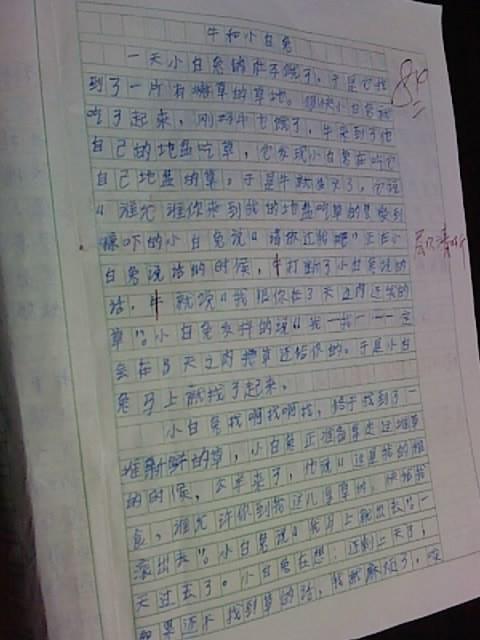 牛和小白兔
一天小白兔的肚子饿了，于是它找
到了一片有嫩草的草地。很快小白兔就
吃了起来，刚好牛也饿了，牛来到了他
自己的地盘吃草，它发现小白兔在吃它
自己地盘的草，于是牛就生气了，它说
“谁允许你来到我的地盘吃草的
惊吓的小白兔说“请你还我吧”正在小
白兔说话的时候，牛打断了小白兔说的
话，牛就说“我限你在3天之内还我的
草”。小白兔发抖的说“我一我一一一定
会在3天之内把草还给你的。于是小白
兔马上就找了起来。
小白兔找啊找啊找，终于找到了一
堆新鲜的草，小白兔正准备拿走这堆草
的时候，公羊来了，他说“这是我的粮
食，谁允许你到我这儿拿草的，快给我
滚出去”。小白兔说“我马上就出去”。一
天过去了。小白兔在想：还剩上天了，
如果还不找到草的话，我就麻烦了，
84
层次清晰